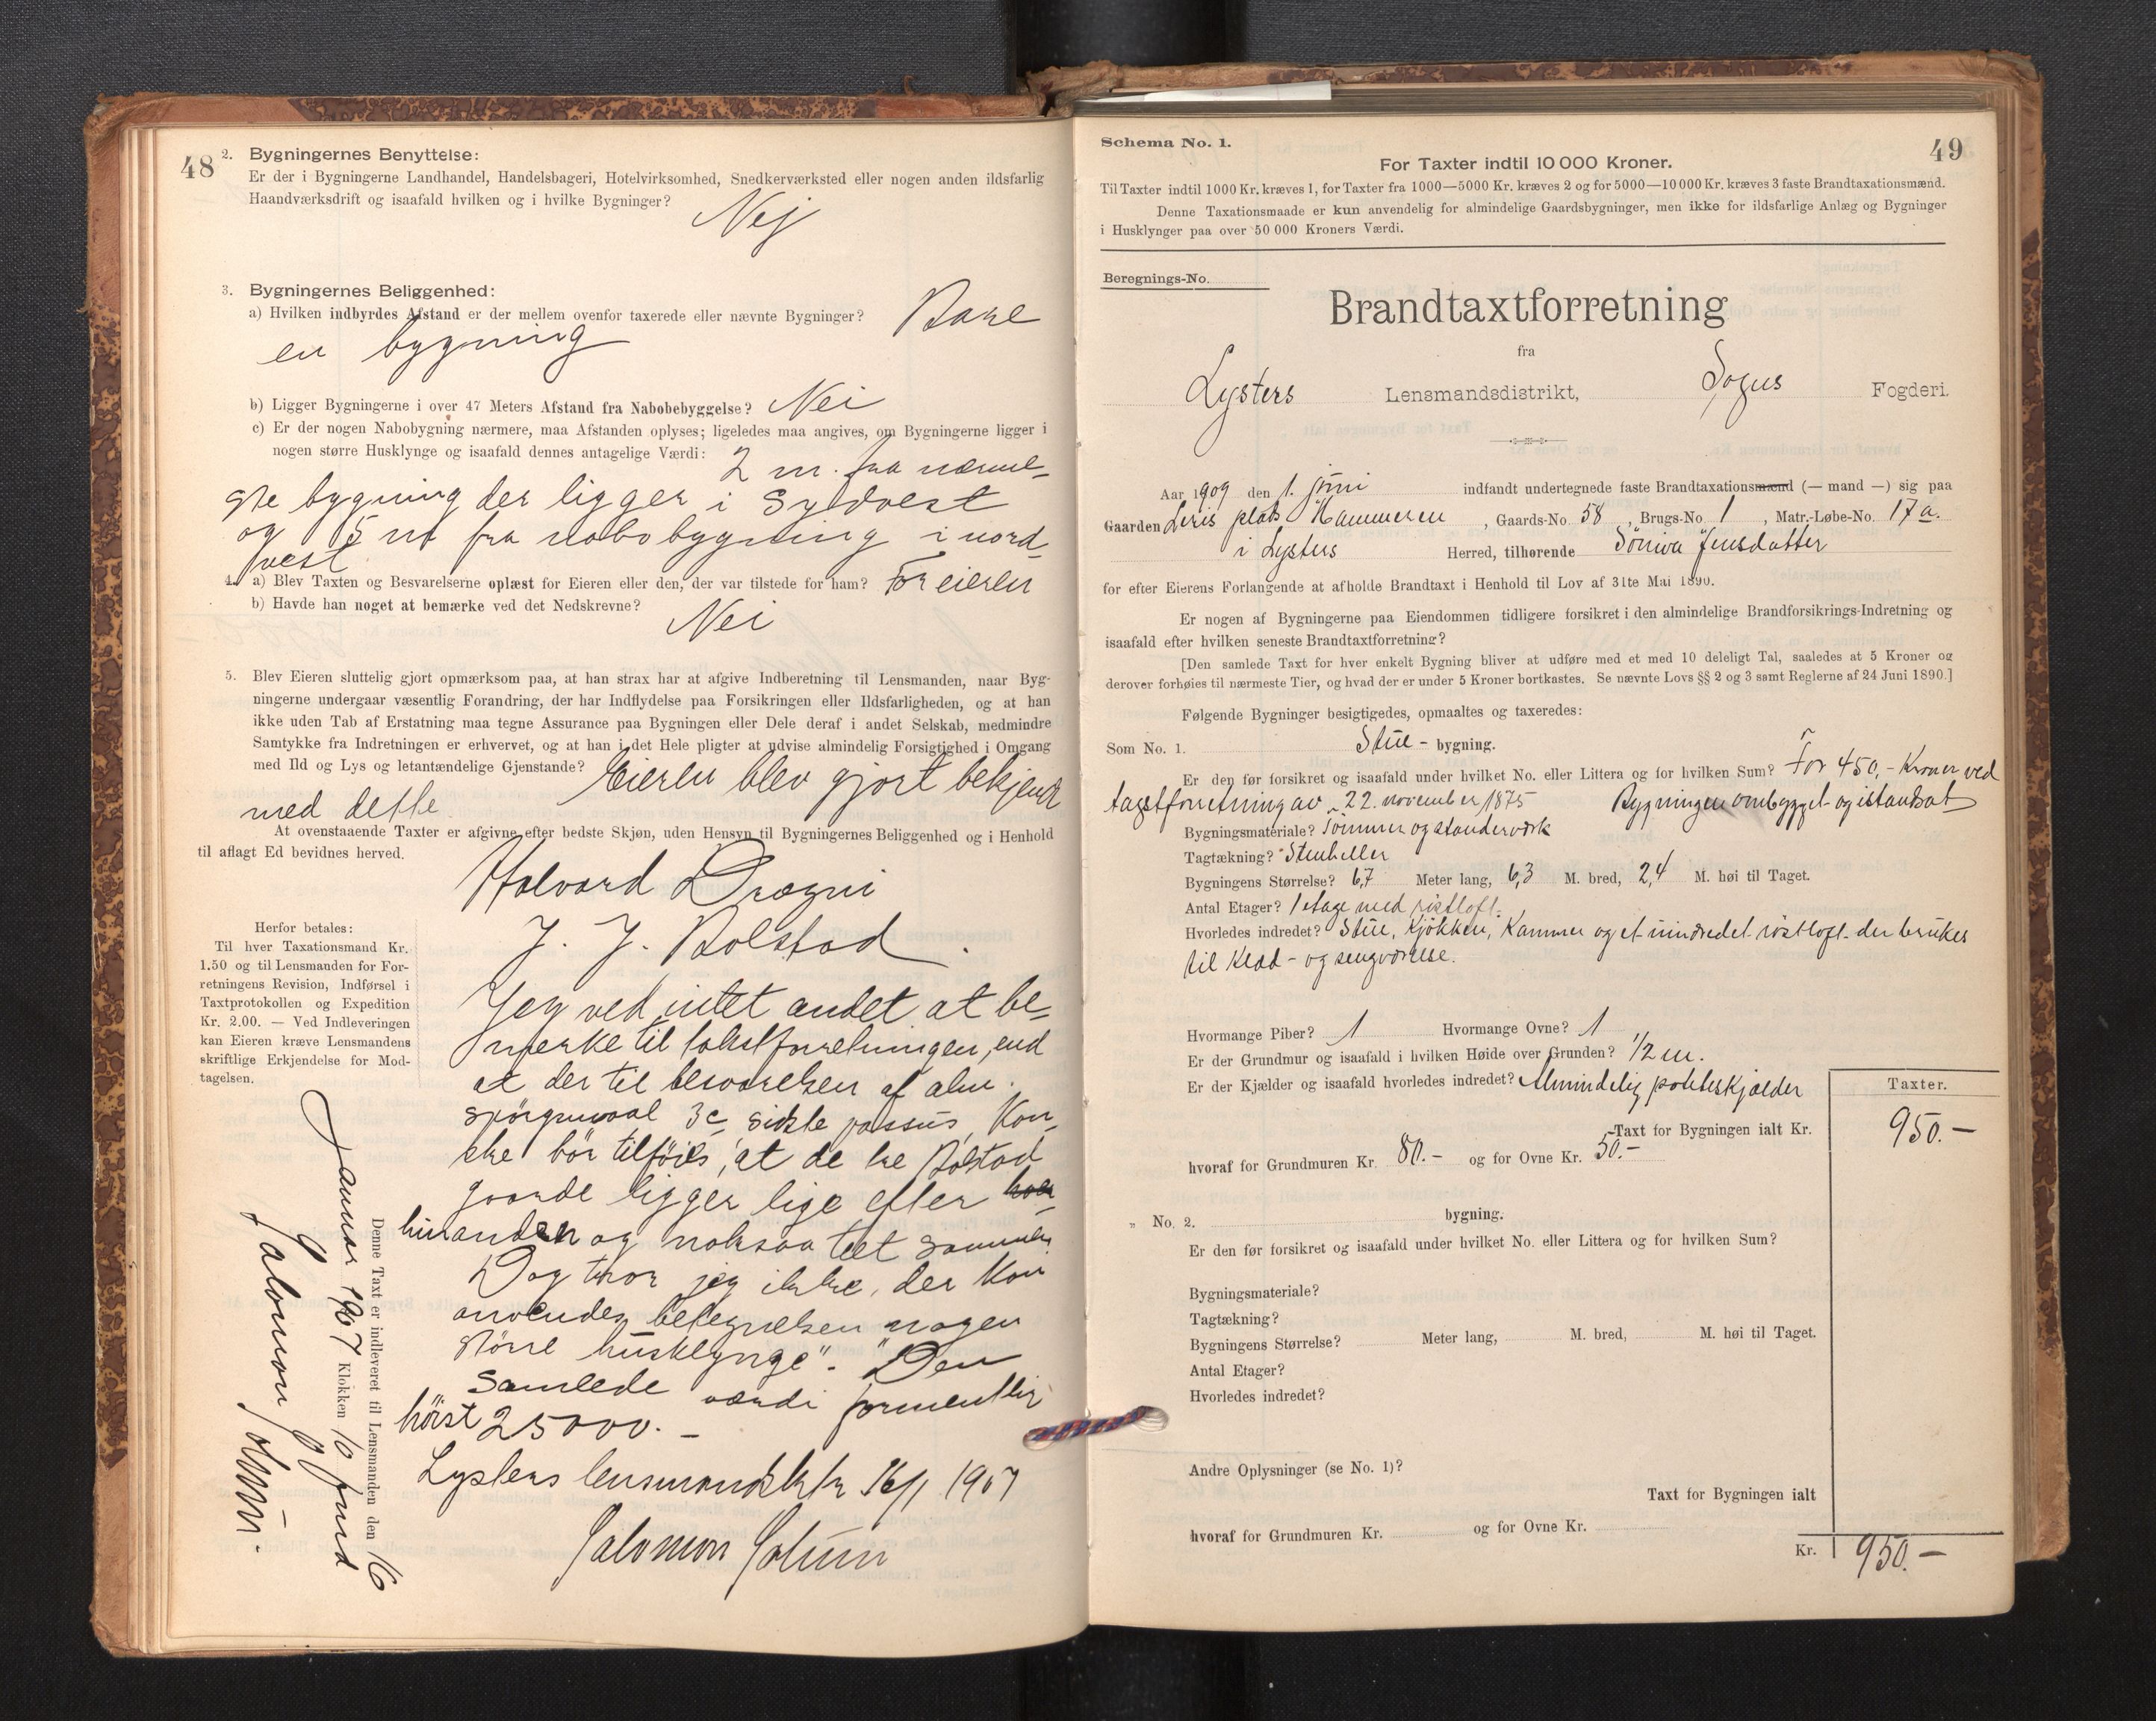 48
2. Bygningernes Benyttelse:
Er der i Bygningerne Landhandel, Handelsbageri, Hotelvirksomhed, Snedkerværksted eller nogen anden ildsfarlig
Haandværksdrift og isaafald hvilken og i hvilke Bygninger?
Nej
3. Bygningernes Beliggenhed:
a) Hvilken indbyrdes Afstand er der mellem ovenfor taxerede eller nævnte Bygninger? Bare
en bygning
b) Ligger Bygningerne i over 47 Meters Afstand fra Nabobebyggelse? Nei
c) Er der nogen Nabobygning nærmere, maa Afstanden oplyses; ligeledes maa angives, om Bygningerne ligger i
nogen større Husklynge og isaafald dennes antagelige Værdi: 2 m. fra nærme-
ste bygning der ligger i Sydvest
og 5 m fra nabobygning i nord-
vest
4. a) Blev Taxten og Besvarelserne oplæst for Eieren eller den, der var tilstede for ham? For eieren
b) Havde han noget at bemærke ved det Nedskrevne?
Nei
5. Blev Eieren sluttelig gjort opmærksom paa, at han strax har at afgive Indberetning til Lensmanden, naar Byg-
ningerne undergaar væsentlig Forandring, der har Indflydelse paa Forsikringen eller Ildsfarligheden, og at han
ikke uden Tab af Erstatning maa tegne Assurance paa Bygningen eller Dele deraf i andet Selskab, medmindre
Samtykke fra Indretningen er erhvervet, og at han i det Hele pligter at udvise almindelig Forsigtighed i Omgang
med Ild og Lys og letantændelige Gjenstande? Eieren blev gjort bekjent
med dette
At ovenstaaende Taxter er afgivne efter bedste Skjøn, uden Hensyn til Bygningernes Beliggenhed og i Henhold
til aflagt Ed bevidnes herved.
Halvard Drægni
J. J. Bolstad
Herfor betales:
Til hver Taxationsmand Kr.
1.50 og til Lensmanden for For-
retningens Revision, Indførsel i
Taxtprotokollen og Expedition
Kr. 2.00. — Ved Indleveringen
kan Eieren kræve Lensmandens
skriftlige Erkjendelse for Mod-
tagelsen.
Jeg ved intet andet at be-
mærke til takstforretningen, end
at der til besvarelsen af alm.
spörgsmaal 3c, sidste passus, Kan-
ske bör tilföies, at de tre Bolstad
gaarde ligger lige efter
hinanden og noksaa tæt sammen.
Dog tror jeg ikke, der kan
anvendes betegnelsen "nogen
större husklynge". Den
samlede værdi formentlig
höist 25000.-
Lysters lensmandsktr 16/1 1907
Salomon Solum
Denne Taxt er indleveret til Lensmanden den 16
Januar 1907 Klokken 10 fmd
Salomon Solum.
49
Schema No. 1.
For Taxter indtil 10 000 Kroner.
Til Taxter indtil 1000 Kr. kræves 1, for Taxter fra 1000—5000 Kr. kræves 2 og for 5000—10 000 Kr. kræves 3 faste Brandtaxationsmænd.
Denne Taxationsmaade er kun anvendelig for almindelige Gaardsbygninger, men ikke for ildsfarlige Anlæg og Bygninger
i Husklynger paa over 50 000 Kroners Værdi.
Beregnings-No.
Brandtaxtforretning
fra
Lysters Lensmandsdistrikt, Sogns Fogderi.
Aar 1909 den 1. juni indfandt undertegnede faste Brandtaxationsmænd (— mand —) sig paa
Gaarden Leris plads Hammeren, Gaards-No. 58, Brugs-No. 1, Matr.-Løbe-No. 17a.
i Lysters Herred, tilhørende Søniva Jensdatter
for efter Eierens Forlangende at afholde Brandtaxt i Henhold til Lov af 31te Mai 1890.
Er nogen af Bygningerne paa Eiendommen tidligere forsikret i den almindelige Brandforsikrings-Indretning og
isaafald efter hvilken seneste Brandtaxtforretning?
[Den samlede Taxt for hver enkelt Bygning bliver at udføre med et med 10 deleligt Tal, saaledes at 5 Kroner og
derover forhøies til nærmeste Tier, og hvad der er under 5 Kroner bortkastes. Se nævnte Lovs §§ 2 og 3 samt Reglerne af 24 Juni 1890.]
Følgende Bygninger besigtigedes, opmaaltes og taxeredes:
Som No. 1. Stue - bygning.
Er den før forsikret og isaafald under hvilket No. eller Littera og for hvilken Sum? For 450,- Kroner ved
takstforretning av 22. november 1875 Bygningen ombygget og istandsat
Bygningsmateriale? Tømmer og standerværk
Tagtækning? Stenheller
Bygningens Størrelse? 6,7 Meter lang, 6,3 M. bred, 2,4 M. høi til Taget.
Antal Etager? 1 etage med røstloft.
Hvorledes indredet? Stue, Kjøkken, Kammer og et uindredet røstloft der brukes
til Klæd- og sengværelse.
Hvormange Piber? 1 Hvormange Ovne? 1
Er der Grundmur og isaafald i hvilken Høide over Grunden? 1/2 m.
Er der Kjælder og isaafald hvorledes indredet? Almindelig poteteskjælder
Taxter.
Taxt for Bygningen ialt Kr. 950.-
hvoraf for Grundmuren Kr. 80.- og for Ovne Kr. 50.-
" No. 2. bygning.
Er den før forsikret og isaafald under hvilket No. eller Littera og for hvilken Sum?
Bygningsmateriale?
Tagtækning?
Bygningens Størrelse? Meter lang, M. bred, M. høi til Taget.
Antal Etager?
Hvorledes indredet?
Andre Oplysninger (se No. 1)?
Taxt for Bygningen ialt
hvoraf for Grundmuren Kr. og for Ovne Kr.
Kr. 950.-